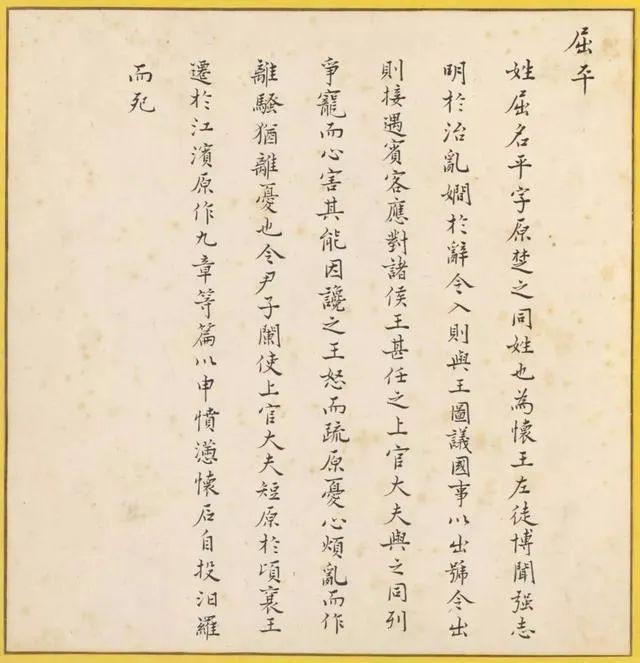 屈平
姓屈名平字原楚之同姓也為懷王左徒博聞强志
明於治亂嫺於辭令入則與王圖議國事以出號令出
則接遇賓客應對諸侯王甚任之上官大夫與之同列
爭寵而心害其能因讒之王怒而疏原憂心煩亂而作
離騷猶離憂也令尹子闌使上官大夫短原於頃襄王
遷於江濱原作九章等篇以申憤懣懷石自投汨羅
而死